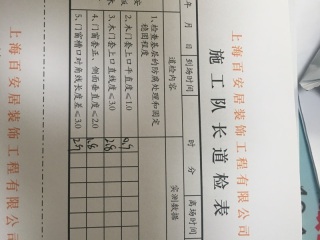 上海百安居装饰工程有限公司
施工队长道检表
年 月 日 到场时间 时 分 离场时间
道检内容 实测数据
1、检查基层的防腐处理和固定稳固程度
2、木门套上口平直度≤1.0 0.9
3、木门套上口直线度≤3.0 2.8
4、门窗套正、侧面垂直度≤2.0 1.8
5、门窗槽口对角线长度差≤3.0 2.9
上海百安居装饰工程有限公司